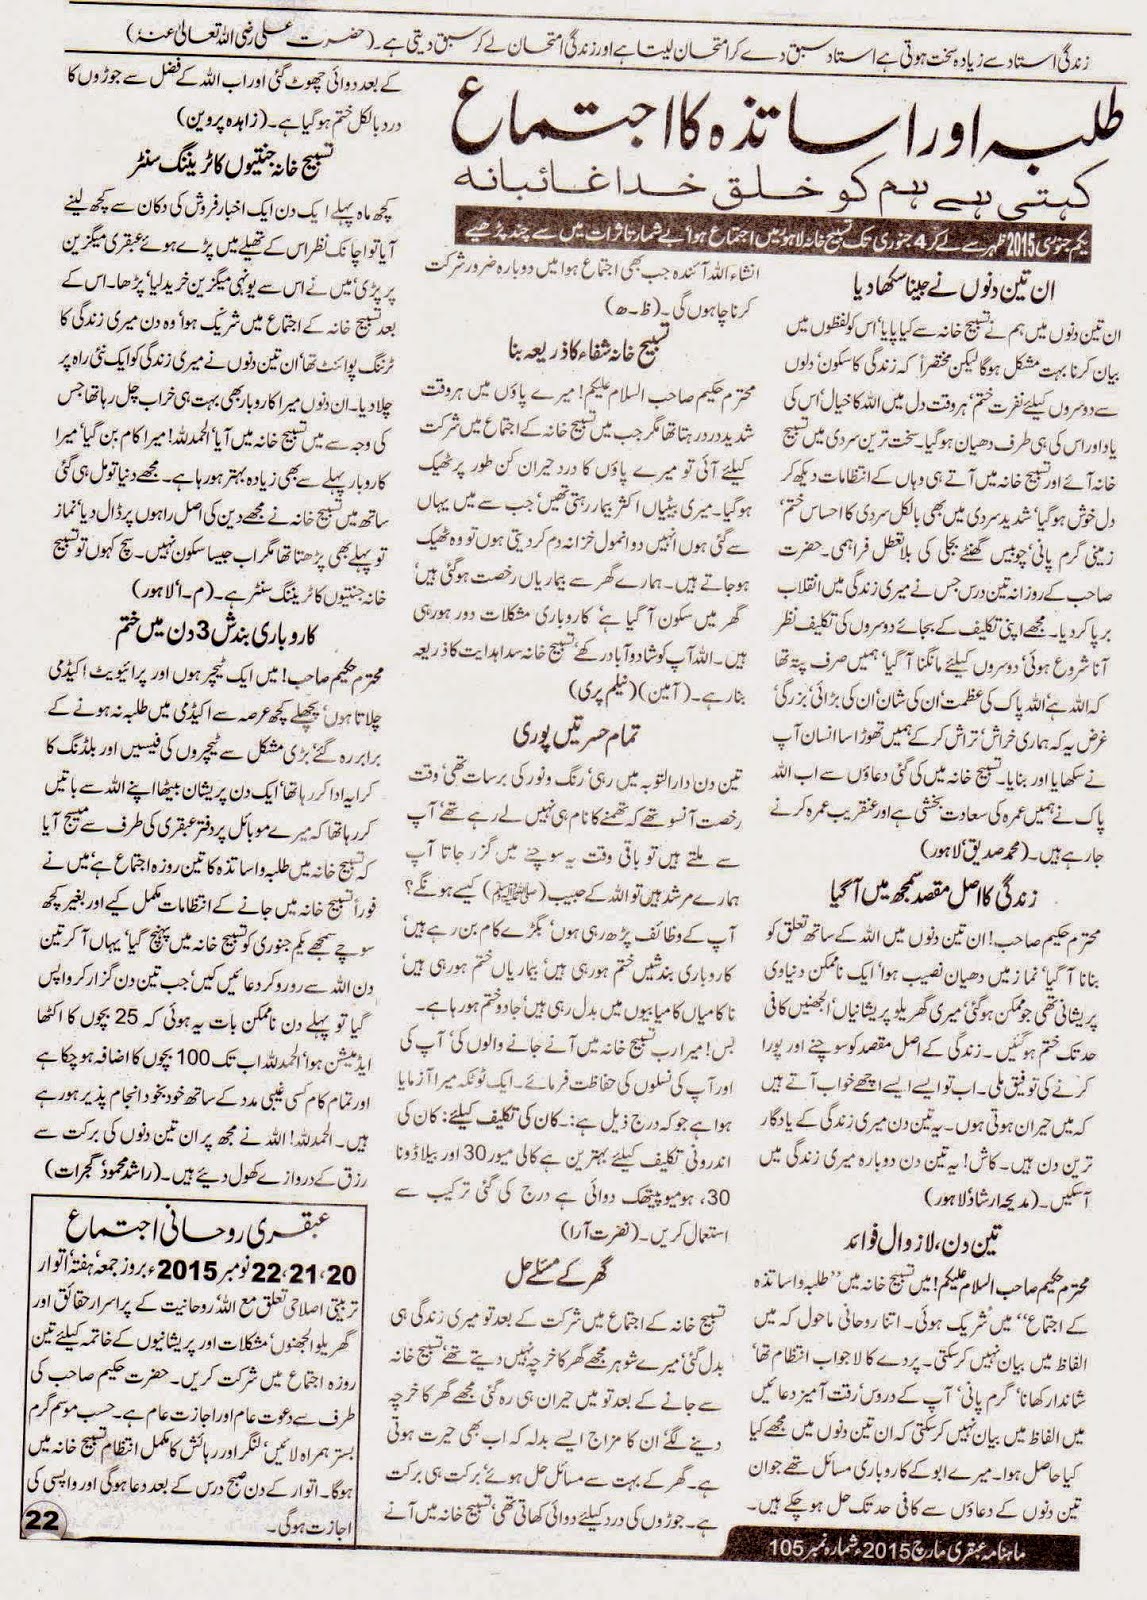 زندگی استاد سے زیادہ سخت ہوتی ہے استاد سبق دے کر امتحان لیتا ہے اور زندگی امتحان لے کر سبق دیتی ہے۔ (حضرت علی رضی اللہ تعالیٰ عنہٗ)
طلبہ اور اساتذہ کا اجتماع
کہتی ہے ہم کو خلق خدا غائبانہ
یکم جنوری 2015 ظہر سے لے کر 4 جنوری تک تسبیح خانہ لاہور میں اجتماع ہوا‘ بے شمار تاثرات میں سے چند پڑھیے
ان تین دنوں نے جینا سکھا دیا
ان تین دنوں میں ہم نے تسبیح خانہ سے کیا پایا‘ اس کو لفظوں میں
بیان کرنا بہت مشکل ہوگا لیکن مختصراً کہ زندگی کا سکون‘ دلوں
سے دوسروں کیلئے نفرت ختم‘ ہر وقت دل میں اللہ کا خیال‘ اس کی
یاد اور اس کی ہی طرف دھیان ہوگیا۔ سخت ترین سردی میں تسبیح
خانہ آئے اور تسبیح خانہ میں آتے ہی وہاں کے انتظامات دیکھ کر
دل خوش ہوگیا‘ شدید سردی میں بھی بالکل سردی کا احساس ختم‘
زمینی گرم پانی‘ چوبیس گھنٹے بجلی کی بلاتعطل فراہمی۔ حضرت
صاحب کے روزانہ تین درس جس نے میری زندگی میں انقلاب
برپا کردیا۔ مجھے اپنی تکلیف کے بجائے دوسروں کی تکلیف نظر
آنا شروع ہوئی‘ دوسروں کیلئے مانگنا آگیا‘ ہمیں صرف پتہ تھا
کہ اللہ ہے‘ اللہ پاک کی عظمت‘ ان کی شان‘ ان کی بڑائی‘ بزرگی‘
غرض یہ کہ ہماری خراش‘ تراش کرکے ہمیں تھوڑا سا انسان آپ
نے سکھایا اور بنایا۔ تسبیح خانہ میں کی گئی دعاؤں سے اب اللہ
پاک نے ہمیں عمرہ کی سعادت بخشی ہے اور عنقریب عمرہ کرنے
جارہے ہیں۔ (محمد صدیق‘ لاہور)
زندگی کا اصل مقصد سمجھ میں آگیا
محترم حکیم صاحب! ان تین دنوں میں اللہ کے ساتھ تعلق کو
بنانا آگیا‘ نماز میں دھیان نصیب ہوا‘ ایک ناممکن دنیاوی
پریشانی تھی جو ممکن ہوگئی‘ میری گھریلو پریشانیاں‘ الجھنیں کافی
حد تک ختم ہوگئیں۔ زندگی کے اصل مقصد کو سوچنے اور پورا
کرنے کی توفیق ملی۔ اب تو ایسے ایسے اچھے خواب آتے ہیں
کہ میں حیران ہوتی ہوں۔ یہ تین دن میری زندگی کے یادگار
ترین دن ہیں۔ کاش! یہ تین دن دوبارہ میری زندگی میں
آسکیں۔ (مدیحہ ارشاد‘ لاہور)
تین دن، لازوال فوائد
محترم حکیم صاحب السلام علیکم! میں تسبیح خانہ میں ”طلبہ و اساتذہ
کے اجتماع“ میں شریک ہوئی۔ اتنا روحانی ماحول کہ میں
الفاظ میں بیان نہیں کرسکتی۔ پردے کا لاجواب انتظام تھا‘
شاندار کھانا‘ گرم پانی‘ آپ کے دروس‘ رقت آمیز دعائیں
میں الفاظ میں بیان نہیں کرسکتی کہ ان تین دنوں میں مجھے کیا
کیا حاصل ہوا۔ میرے ابو کے کاروباری مسائل تھے جو ان
تین دنوں کے دعاؤں سے کافی حد تک حل ہوچکے ہیں۔
انشاء اللہ آئندہ جب بھی اجتماع ہوا میں دوبارہ ضرور شرکت
کرنا چاہوں گی۔ (ظ۔ھ)
تسبیح خانہ شفاء کا ذریعہ بنا
محترم حکیم صاحب السلام علیکم! میرے پاؤں میں ہر وقت
شدید درد رہتا تھا مگر جب میں تسبیح خانہ کے اجتماع میں شرکت
کیلئے آئی تو میرے پاؤں کا درد حیران کن طور پر ٹھیک
ہوگیا۔ میری بیٹیاں اکثر بیمار رہتی تھیں‘ جب سے میں یہاں
سے گئی ہوں انہیں دو انمول خزانہ دم کردیتی ہوں تو وہ ٹھیک
ہوجاتے ہیں۔ ہمارے گھر سے بیماریاں رخصت ہوگئی ہیں‘
گھر میں سکون آگیا ہے‘ کاروباری مشکلات دور ہورہی
ہیں۔ اللہ آپ کو شاد و آباد رکھے‘ تسبیح خانہ سدا ہدایت کا ذریعہ
بنا رہے۔ (آمین) (نیلم پری)
تمام حسرتیں پوری
تین دن دارالتوبہ میں رہی‘ رنگ و نور کی برسات تھی‘ وقت
رخصت آنسو تھے کہ تھمنے کا نام ہی نہیں لے رہے تھے‘ آپ
سے ملتے ہیں تو باقی وقت یہ سوچنے میں گزر جاتا آپ
ہمارے مرشد ہیں تو اللہ کے حبیب (ﷺ) کیسے ہونگے؟
آپ کے وظائف پڑھ رہی ہوں‘ بگڑے کام بن رہے ہیں‘
کاروباری بندشیں ختم ہورہی ہیں‘ بیماریاں ختم ہورہی ہیں‘
ناکامیاں کامیابیوں میں بدل رہی ہیں‘ جادو ختم ہورہا ہے۔
بس! میرا رب تسبیح خانہ میں آنے جانے والوں کی‘ آپ کی
اور آپ کی نسلوں کی حفاظت فرمائے۔ ایک ٹوٹکہ میرا آزمایا
ہوا ہے جو کہ درج ذیل ہے:۔ کان کی تکلیف کیلئے: کان کی
اندرونی تکلیف کیلئے بہترین ہے کالی میور 30 اور بیلا ڈونا
30، ہومیو پیتھک دوائی ہے درج کی گئی ترکیب سے
استعمال کریں۔ (نضرت آرا)
گھر کے مسئلے حل
تسبیح خانہ کے اجتماع میں شرکت کے بعد تو میری زندگی ہی
بدل گئی‘ میرے شوہر مجھے گھر کا خرچہ نہیں دیتے تھے‘ تسبیح خانہ
سے جانے کے بعد تو میں حیران ہی رہ گئی مجھے گھر کا خرچہ
دینے لگے‘ ان کا مزاج ایسے بدلہ کہ اب بھی حیرت ہوتی
ہے۔ گھر کے بہت سے مسائل حل ہوئے‘ برکت ہی برکت
ہے۔ جوڑوں کی درد کیلئے دوائی کھاتی تھی‘ تسبیح خانہ میں آنے
کے بعد دوائی چھوٹ گئی اور اب اللہ کے فضل سے جوڑوں کا
درد بالکل ختم ہوگیا ہے۔ (زاہدہ پروین)
تسبیح خانہ جنتیوں کا ٹریننگ سنٹر
کچھ ماہ پہلے ایک دن ایک اخبار فروش کی دکان سے کچھ لینے
آیا تو اچانک نظر اس کے تھیلے میں پڑے ہوئے عبقری میگزین
پر پڑی‘ میں نے اس سے یونہی میگزین خرید لیا‘ پڑھا۔ اس کے
بعد تسبیح خانہ کے اجتماع میں شریک ہوا‘ وہ دن میری زندگی کا
ٹرننگ پوائنٹ تھا‘ ان تین دنوں نے میری زندگی کو ایک نئی راہ پر
چلا دیا۔ ان دنوں میرا کاروبار بھی بہت ہی خراب چل رہا تھا جس
کی وجہ سے میں تسبیح خانہ میں آیا‘ الحمدللہ! میرا کام بن گیا‘ میرا
کاروبار پہلے سے بھی زیادہ بہتر ہورہا ہے۔ مجھے دنیا تو مل ہی گئی
ساتھ میں تسبیح خانہ نے مجھے دین کی اصل راہوں پر ڈال دیا‘ نماز
تو پہلے بھی پڑھتا تھا مگر اب جیسا سکون نہیں۔ سچ کہوں تو تسبیح
خانہ جنتیوں کا ٹریننگ سنٹر ہے۔ (م۔ا‘ لاہور)
کاروباری بندش 3 دن میں ختم
محترم حکیم صاحب! میں ایک ٹیچر ہوں اور پرائیویٹ اکیڈمی
چلاتا ہوں‘ پچھلے کچھ عرصہ سے اکیڈمی میں طلبہ نہ ہونے کے
برابر رہ گئے‘ بڑی مشکل سے ٹیچروں کی فیسیں اور بلڈنگ کا
کرایہ ادا کررہا تھا‘ ایک دن پریشان بیٹھا اپنے اللہ سے باتیں
کررہا تھا کہ میرے موبائل پر دفتر عبقری کی طرف سے میسج آیا
کہ تسبیح خانہ میں طلبہ و اساتذہ کا تین روزہ اجتماع ہے‘ میں نے
فوراً تسبیح خانہ میں جانے کے انتظامات مکمل کیے اور بغیر کچھ
سوچے سمجھے یکم جنوری کو تسبیح خانہ میں پہنچ گیا‘ یہاں آکر تین
دن اللہ سے رو رو کر دعائیں کیں‘ جب تین دن گزار کر واپس
گیا تو پہلے دن ناممکن بات یہ ہوئی کہ 25 بچوں کا اکٹھا
ایڈمیشن ہوا‘ الحمدللہ اب تک 100 بچوں کا اضافہ ہوچکا ہے
اور تمام کام کسی غیبی مدد کے ساتھ خودبخود انجام پذیر ہورہے
ہیں۔ الحمدللہ! اللہ نے مجھ پر ان تین دنوں کی برکت سے
رزق کے دروازے کھول دیئے ہیں۔ (راشد محمود‘ گجرات)
عبقری روحانی اجتماع
20، 21، 22 نومبر 2015ء بروز جمعہ‘ ہفتہ‘ اتوار
تربیتی اصلاحی تعلق مع اللہ‘ روحانیت کے پراسرار حقائق اور
گھریلو الجھنوں‘ مشکلات اور پریشانیوں کے خاتمہ کیلئے تین
روزہ اجتماع میں شرکت کریں۔ حضرت حکیم صاحب کی
طرف سے دعوت عام اور اجازت عام ہے۔ حسب موسم گرم
بستر ہمراہ لائیں‘ لنگر اور رہائش کا مکمل انتظام تسبیح خانہ میں
ہوگا۔ اتوار کے دن صبح درس کے بعد دعا ہوگی اور واپسی کی
اجازت ہوگی۔
22
ماہنامہ عبقری مارچ 2015ء شمارہ نمبر 105